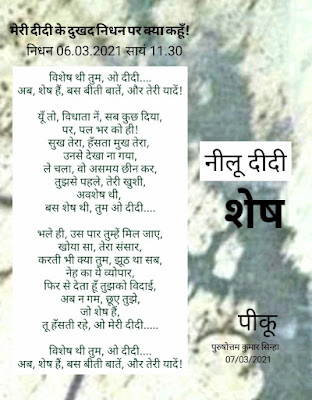 मेरी दीदी के दुखद निधन पर क्या कहूँ!
निधन 06.03.2021 सायं 11.30
विशेष थी तुम, ओ दीदी....
अब, शेष हैं, बस बीती बातें, और तेरी यादें!
यूँ तो, विधाता नें, सब कुछ दिया,
पर, पल भर को ही!
सुख तेरा, हँसता मुख तेरा,
उनसे देखा ना गया,
ले चला, वो असमय छीन कर,
तुझसे पहले, तेरी खुशी,
अवशेष थी,
बस शेष थी, तुम, ओ दीदी....
भले ही, उस पार तुम्हें मिल जाए,
खोया सा, तेरा संसार,
करती भी क्या तुम, झूठ था सब,
नेह का ये व्योपार,
फिर से देता हूँ तुझको विदाई,
अब न गम, छूए तुझे,
जो शेष हैं,
तू हँसती रहे, ओ मेरी दीदी.....
विशेष थी तुम, ओ दीदी....
अब, शेष हैं, बस बीती बातें, और तेरी यादें!
नीलू दीदी
शेष
पीकू
पुरुषोत्तम कुमार सिन्हा
07/03/2021